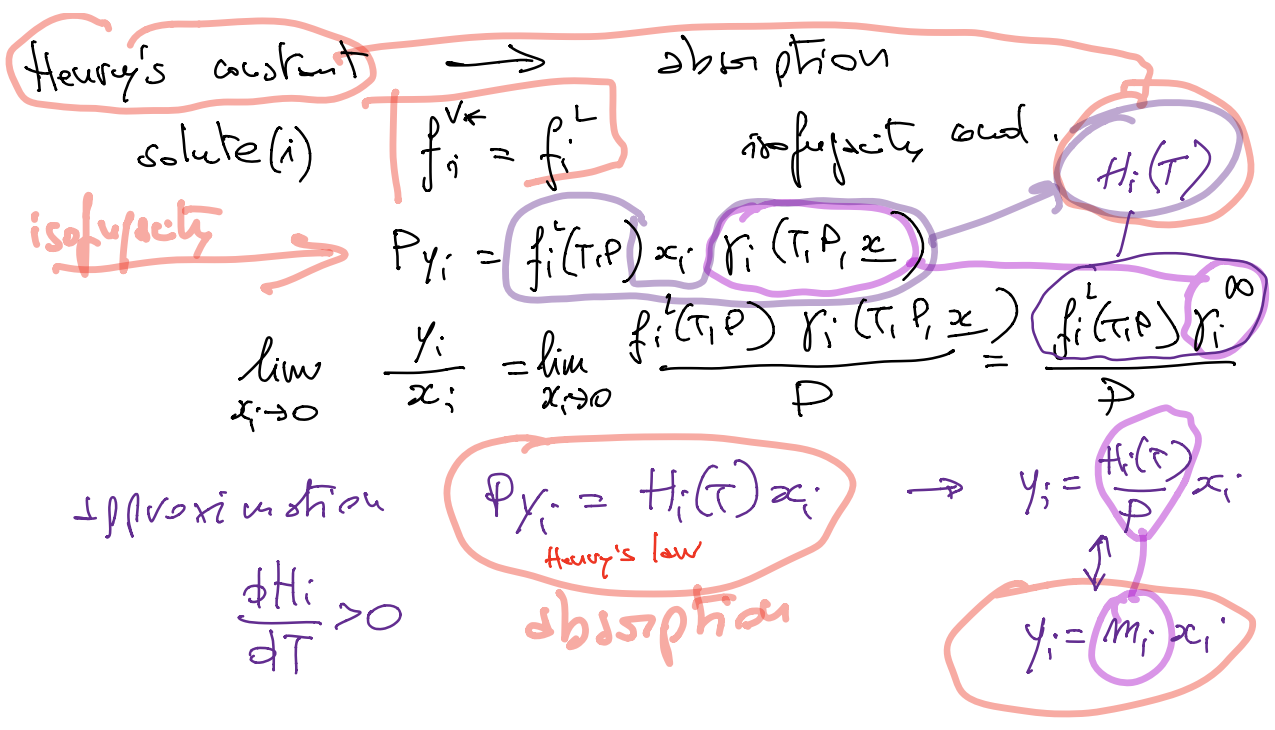 Henry's constant → absorption
solute(i) f_i^V = f_i^L isofugacity cond. H_i(T)
isofugacity → P y_i = f_i^L(T,P) x_i γ_i(T,P,x)
lim_{x_i→0} y_i/x_i = lim_{x_i→0} f_i^L(T,P) γ_i(T,P,x)/P = f_i^L(T,P) γ_i^∞/P
approximation P y_i = H_i(T) x_i → y_i = H_i(T)/P x_i
Henry's law
dH_i/dT > 0 absorption y_i = m_i x_i